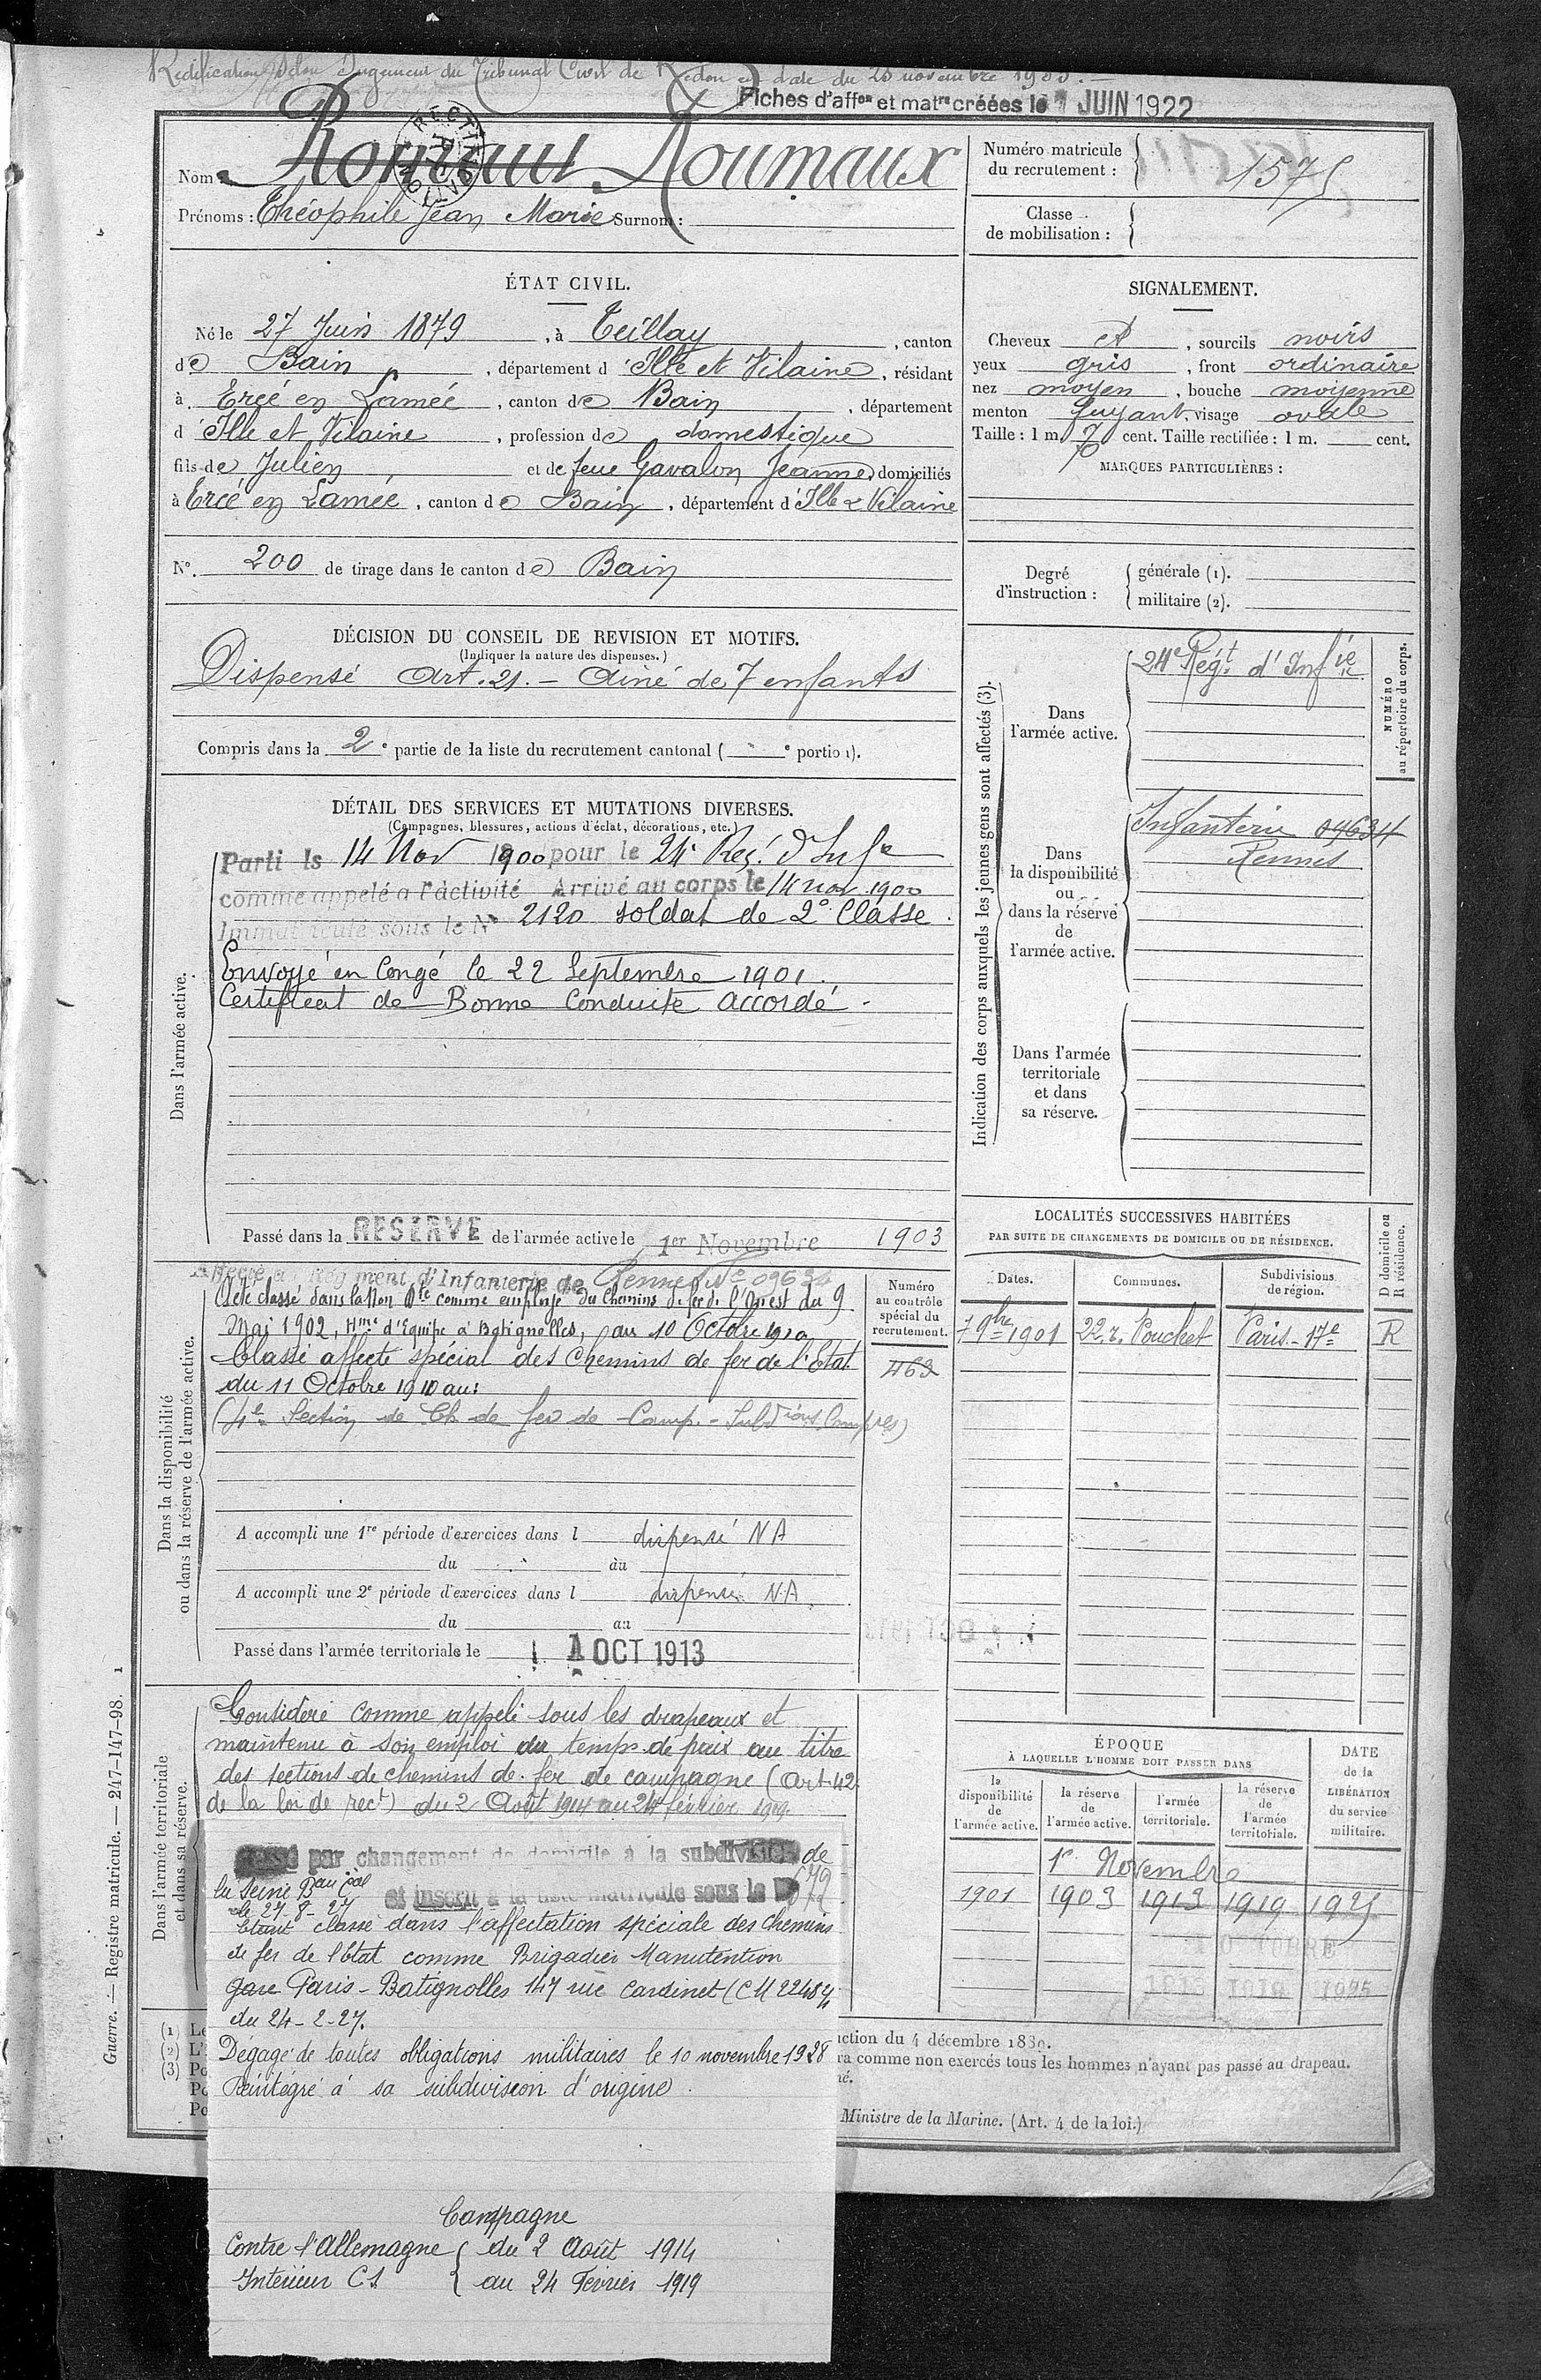 Rectification selon Jugement du Tribunal Civil de Redon en date du novembre
Fiches d'affon et matre créées le JUIN 1922
Nom : Roumaux
Prénoms : Théophile Jean Marie Surnom :
Numéro matricule du recrutement : 1575
Classe de mobilisation :
ÉTAT CIVIL.
Né le 27 Juin 1879, à Teillay, canton
de Bain, département d'Ille et Vilaine, résidant
à Ercé en Lamée, canton de Bain, département
d'Ille et Vilaine, profession de domestique
fils de Julien et de feue Gavalon Jeanne, domiciliés
à Ercé en Lamée, canton de Bain, département d'Ille & Vilaine
N°. 200 de tirage dans le canton de Bain
SIGNALEMENT.
Cheveux et, sourcils noirs
yeux gris, front ordinaire
nez moyen, bouche moyenne
menton fuyant, visage ovale
Taille : 1 m. 70 cent. Taille rectifiée : 1 m. cent.
MARQUES PARTICULIÈRES :
Degré d'instruction :
générale (1).
militaire (2).
DÉCISION DU CONSEIL DE REVISION ET MOTIFS.
(Indiquer la nature des dispenses.)
Dispensé Art. 21. - Ainé de 7 enfants
Compris dans la 2e partie de la liste du recrutement cantonal ( e portion).
DÉTAIL DES SERVICES ET MUTATIONS DIVERSES.
(Campagnes, blessures, actions d'éclat, décorations, etc.)
Dans l'armée active.
Parti le 14 Nov 1900 pour le 24e Reg. d'Infie
comme appelé à l'activité Arrivé au corps le 14 nov. 1900
Immatriculé sous le No 2120 soldat de 2e Classe.
Envoyé en Congé le 22 Septembre 1901.
Certificat de Bonne Conduite accordé -
Passé dans la RESERVE de l'armée active le 1er Novembre 1903
Indication des corps auxquels les jeunes gens sont affectés (3).
NUMÉRO au répertoire du corps.
Dans l'armée active.
24e Régt d'Infie
Dans la disponibilité ou dans la réserve de l'armée active.
Infanterie 09634
Rennes
Dans l'armée territoriale et dans sa réserve.
Dans la disponibilité ou dans la réserve de l'armée active.
Affecté au Régiment d'Infanterie de Rennes No 09634
A été classé dans la Non Dle comme employé du Chemins de fer de l'Ouest du 9
Mai 1902, Hme d'Equipe à Batignolles, au 10 Octobre 1910
Classé affecté spécial des Chemins de fer de l'Etat
du 11 Octobre 1910 au :
(4e Section de Ch. de fer de Camp. - Subdions Complres)
Numéro au contrôle spécial du recrutement.
463
A accompli une 1re période d'exercices dans l dispensé NA
du au
A accompli une 2e période d'exercices dans l dispensé NA
du au
Passé dans l'armée territoriale le 1 OCT 1913
LOCALITÉS SUCCESSIVES HABITÉES
PAR SUITE DE CHANGEMENTS DE DOMICILE OU DE RÉSIDENCE.
Dates. Communes. Subdivisions de région. D domicile ou R résidence.
7 9bre 1901 22 r. Pouchet Paris - 17e R
Dans l'armée territoriale et dans sa réserve.
Considéré comme appelé sous les drapeaux et
maintenu à son emploi du temps de paix au titre
des sections de chemins de fer de campagne (Art. 42
de la loi de rect) du 2 Août 1914 au 24 février 1919.
Passé par changement de domicile à la subdivision de
la Seine Bau pal et inscrit à la liste matricule sous le No 679
le 27-8-27
Etant classé dans l'affectation spéciale des Chemins
de fer de l'Etat comme Brigadier Manutention
gare Paris - Batignolles 147 rue Cardinet (CM 22484
du 24-2-27.
Dégagé de toutes obligations militaires le 10 novembre 1928
Réintégré à sa subdivision d'origine.
Campagne
Contre l'Allemagne { du 2 Août 1914
Intérieur CS { au 24 Février 1919
ÉPOQUE
À LAQUELLE L'HOMME DOIT PASSER DANS
la disponibilité de l'armée active. la réserve de l'armée active. l'armée territoriale. la réserve de l'armée territoriale.
DATE de la LIBÉRATION du service militaire.
1er Novembre
1901 1903 1913 1919 1925
OCTOBRE
1919
ction du 4 décembre 1889.
ra comme non exercés tous les hommes n'ayant pas passé au drapeau.
né.
Ministre de la Marine. (Art. 4 de la loi.)
(1) Le
(2) L'
(3) Po
Po
Po
Guerre. — Registre matricule. — 247-147-98. 1